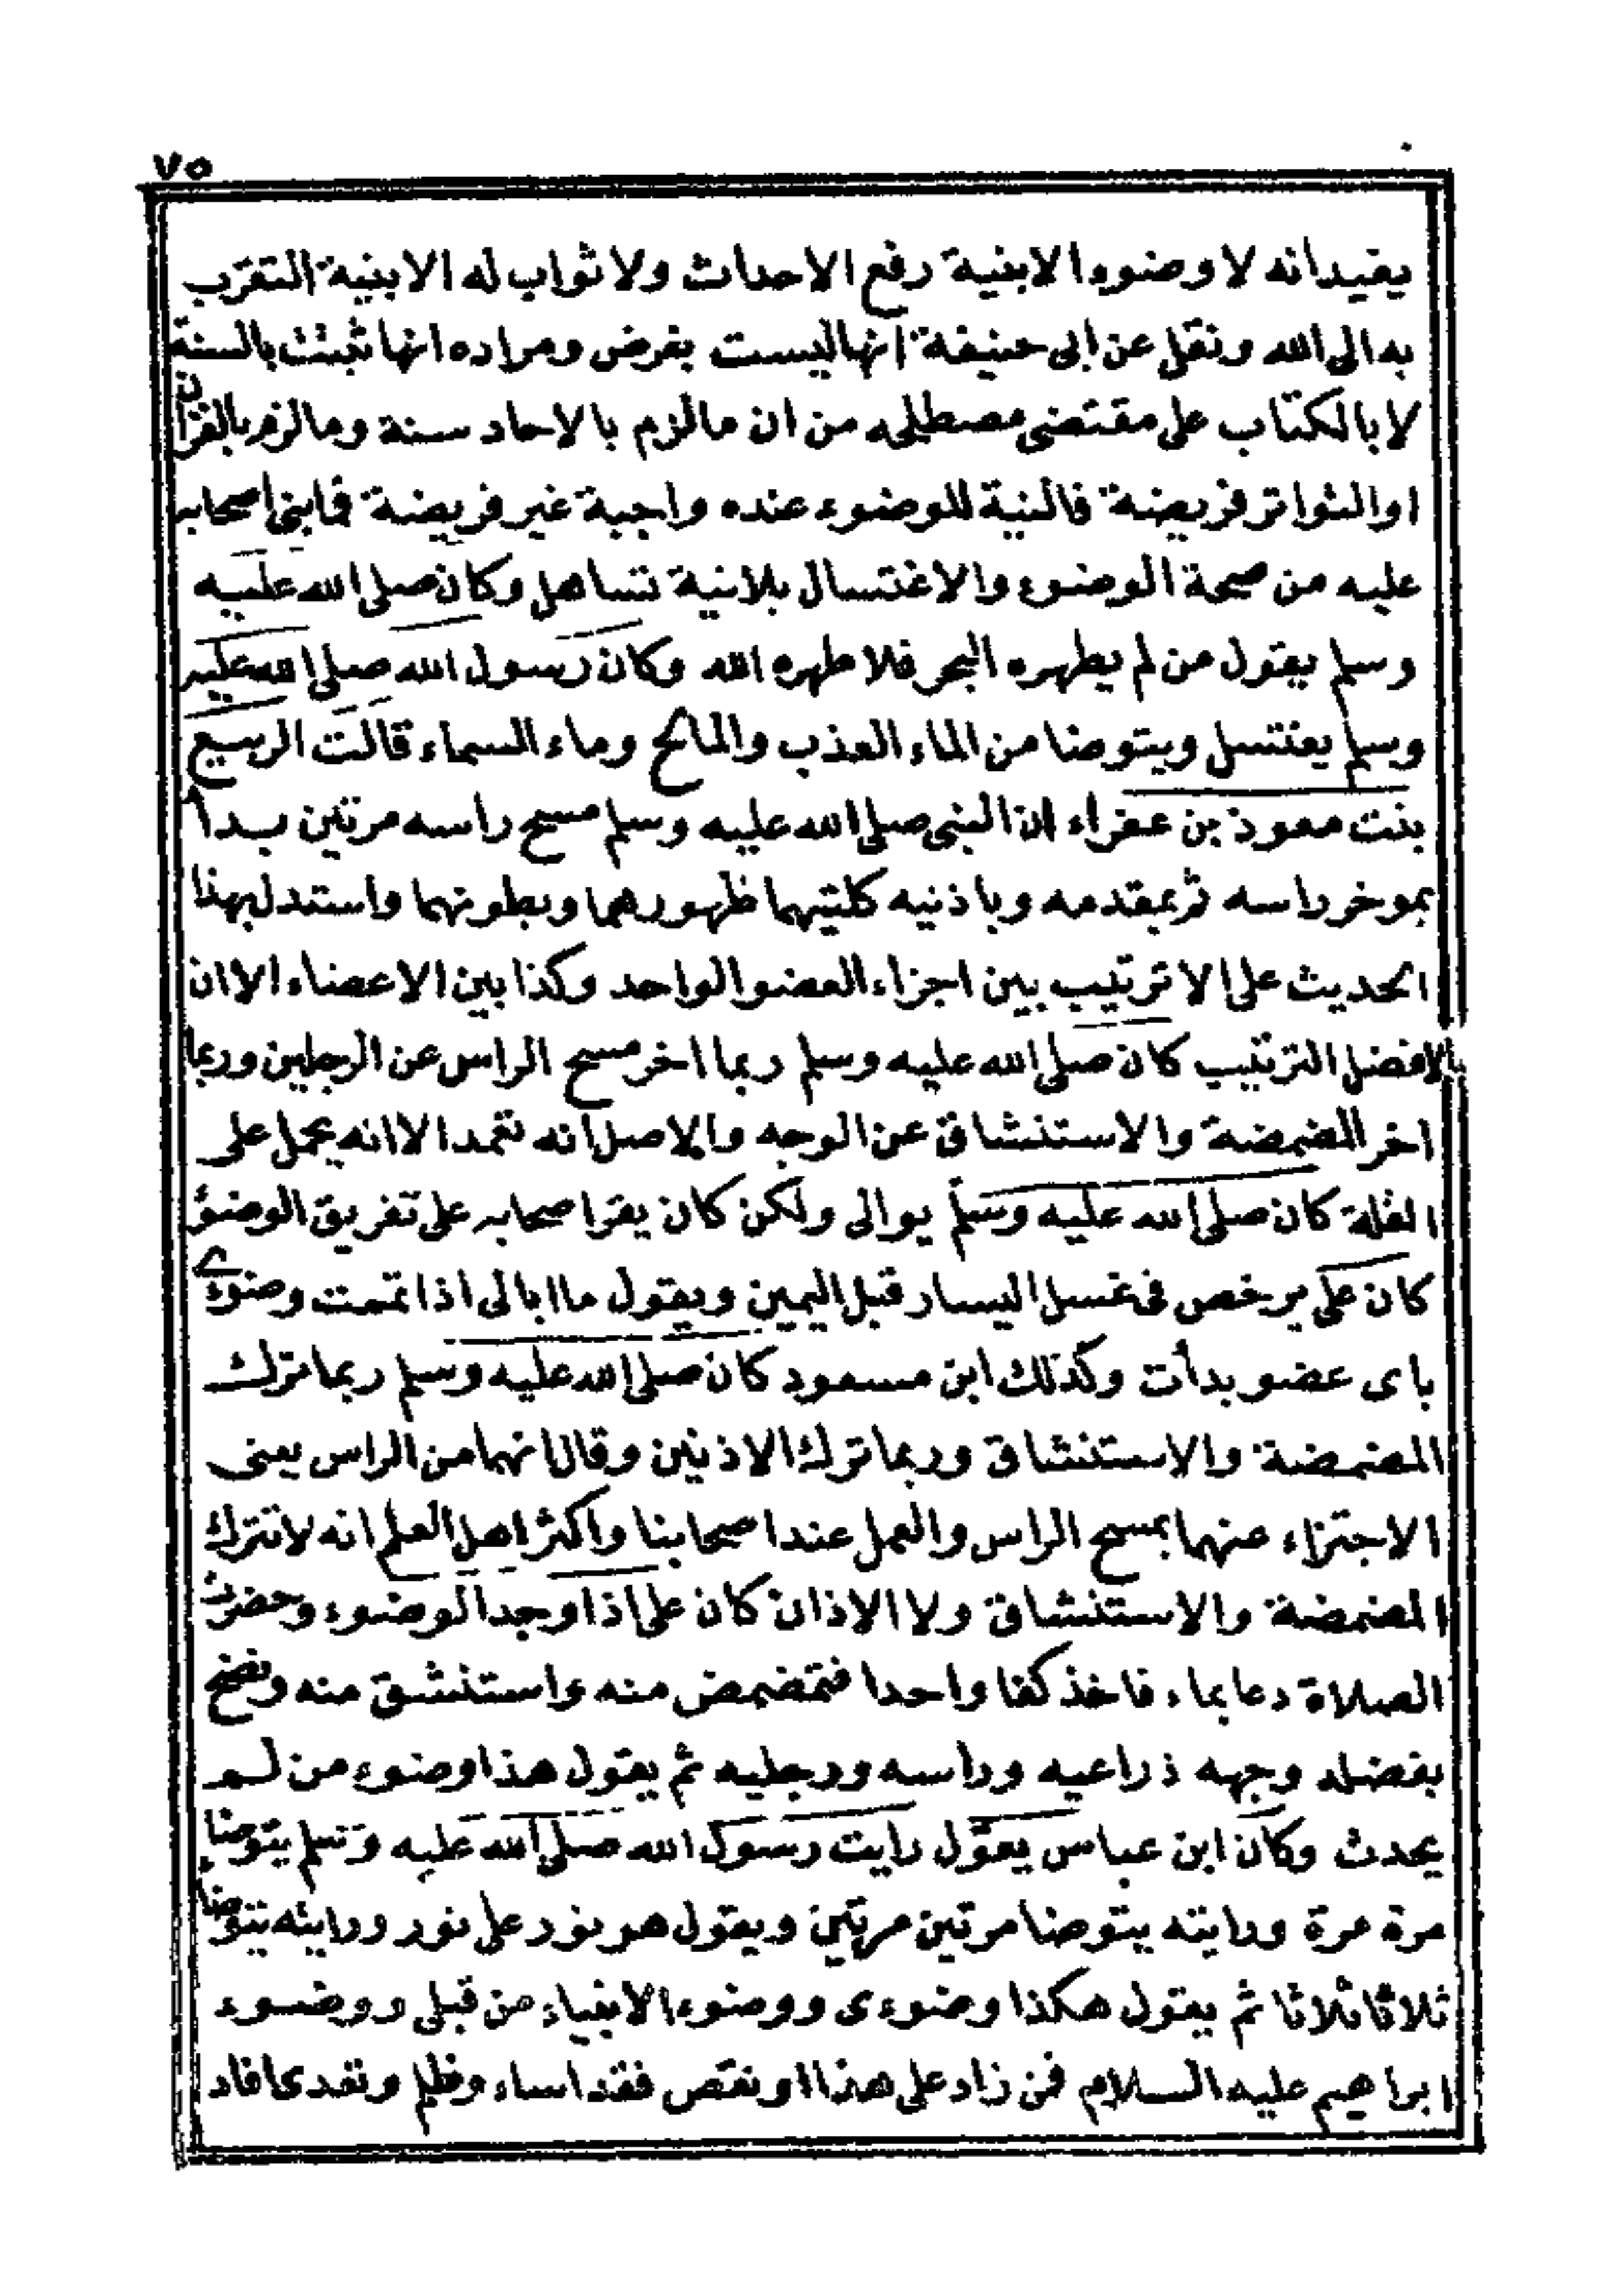 ٧٥
يفيد انه لا وضوء الا بنية رفع الاحداث ولا ثواب له الا بنية التقرب
به الى الله ونقل عن ابى حنيفة انها ليست بفرض ومراده انها ثبتت بالسنة
لا بالكتاب على مقتضى مصطلحه من ان ما لزم بالاحاد سنة وما لزم بالقران
او التواتر فريضة فالنية للوضوء عنده واجبة غير فريضة فابنى اصحابه
عليه من صحة الوضوء والاغتسال بلا نية تساهل وكان صلى الله عليه
وسلم يقول من لم يطهره البحر فلا طهره الله وكان رسول الله صلى الله عليه
وسلم يغتسل ويتوضا من الماء العذب والمالح وماء السماء قالت الربيع
بنت معوذ بن عفراء ان النبى صلى الله عليه وسلم مسح راسه مرتين بدا
بموخر راسه ثم بمقدمه وباذنيه كلتيهما ظهورهما وبطونهما واستدل بهذا
الحديث على الا ترتيب بين اجزاء العضو الواحد وكذا بين الاعضاء الا ان
الافضل الترتيب كان صلى الله عليه وسلم ربما اخر مسح الراس عن الرجلين وربما
اخر المضمضة والاستنشاق عن الوجه والاصل انه تتمد الا انه يحمل على
الغلة كان صلى الله عليه وسلم يوالى ولكن كان يقر اصحابه على تفريق الوضوء
كان على يرخص فى غسل اليسار قبل اليمين ويقول ما ابالى اذا تممت وضوءى
باى عضو بدأت وكذلك ابن مسعود كان صلى الله عليه وسلم ربما ترك
المضمضة والاستنشاق وربما ترك الاذنين وقال انهما من الراس يعنى
الاجتزاء عنهما بمسح الراس والعمل عند اصحابنا واكثر اهل العلم انه لا تترك
المضمضة والاستنشاق ولا الاذان كان على اذا وجد الوضوء وحضرت
الصلاة دعا بماء فاخذ كفا واحدا فتمضمض منه واستنشق منه ونضح
بفضله وجهه ذراعيه وراسه ورجليه ثم يقول هذا وضوء من لم
يحدث وكان ابن عباس يقول رايت رسول الله صلى الله عليه وسلم يتوضا
مرة مرة ورايته يتوضا مرتين مرتين ويقول هو نور على نور ورايته يتوضا
ثلاثا ثلاثا ثم يقول هكذا وضوءى ووضوء الانبياء من قبلى ووضوء
ابراهيم عليه السلام فمن زاد على هذا او نقص فقد اساء وظلم وتعدى افاد